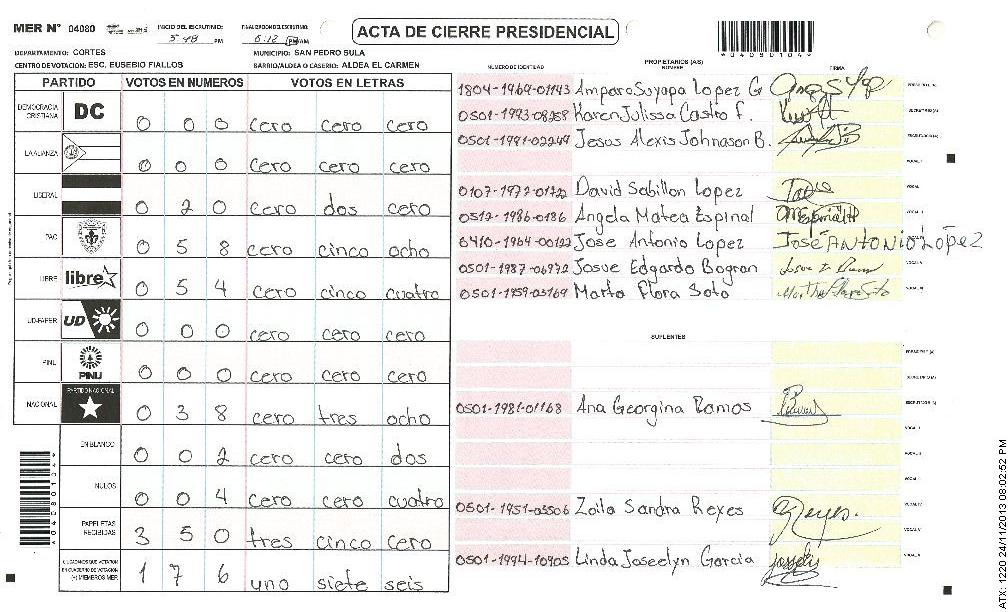 MER N° 04080
INICIO DEL ESCRUTINIO: 5:48 PM
FINALIZACION DEL ESCRUTINIO: 6:12 PM AM
ACTA DE CIERRE PRESIDENCIAL
*04080104*
DEPARTAMENTO: CORTES
MUNICIPIO: SAN PEDRO SULA
CENTRO DE VOTACION: ESC. EUSEBIO FIALLOS
BARRIO/ALDEA O CASERIO: ALDEA EL CARMEN
PARTIDO VOTOS EN NUMEROS VOTOS EN LETRAS
DEMOCRACIA CRISTIANA DC 0 0 0 cero cero cero
LA ALIANZA 0 0 0 cero cero cero
LIBERAL 0 2 0 cero dos cero
PAC 0 5 8 cero cinco ocho
LIBRE libre 0 5 4 cero cinco cuatro
UD-FAPER UD 0 0 0 cero cero cero
PINU PINU 0 0 0 cero cero cero
NACIONAL PARTIDO NACIONAL 0 3 8 cero tres ocho
EN BLANCO 0 0 2 cero cero dos
NULOS 0 0 4 cero cero cuatro
PAPELETAS RECIBIDAS 3 5 0 tres cinco cero
CIUDADANOS QUE VOTARON EN CUADERNO DE VOTACION (+) MIEMBROS MER 1 7 6 uno siete seis
PROPIETARIOS (AS)
NUMERO DE IDENTIDAD NOMBRE FIRMA
1804-1969-01143 Amparo Suyapa Lopez G PRESIDENTE (A)
0501-1993-08258 Karen Julissa Castro f. SECRETARIO (A)
0501-1991-02249 Jesus Alexis Johnason B. ESCRUTADOR (A)
VOCAL I
0107-1972-01722 David Sabillon Lopez VOCAL
0512-1986-0186 Angela Matea Espinal
0410-1964-00122 Jose Antonio Lopez JOSÉ ANTONIO LÓPEZ
0501-1987-06972 Josue Edgardo Bogran
0501-1959-03169 Marta Flora Soto
SUPLENTES
PRESIDENTE (A)
SECRETARIO (A)
0501-1981-01168 Ana Georgina Ramos ESCRUTADOR (A)
VOCAL I
VOCAL II
VOCAL III
0501-1951-05506 Zoila Sandra Reyes Reyes. VOCAL IV
VOCAL V
0501-1994-10905 Linda Joseelyn Garcia
ATX: 1220 24/11/2013 08:02:52 PM